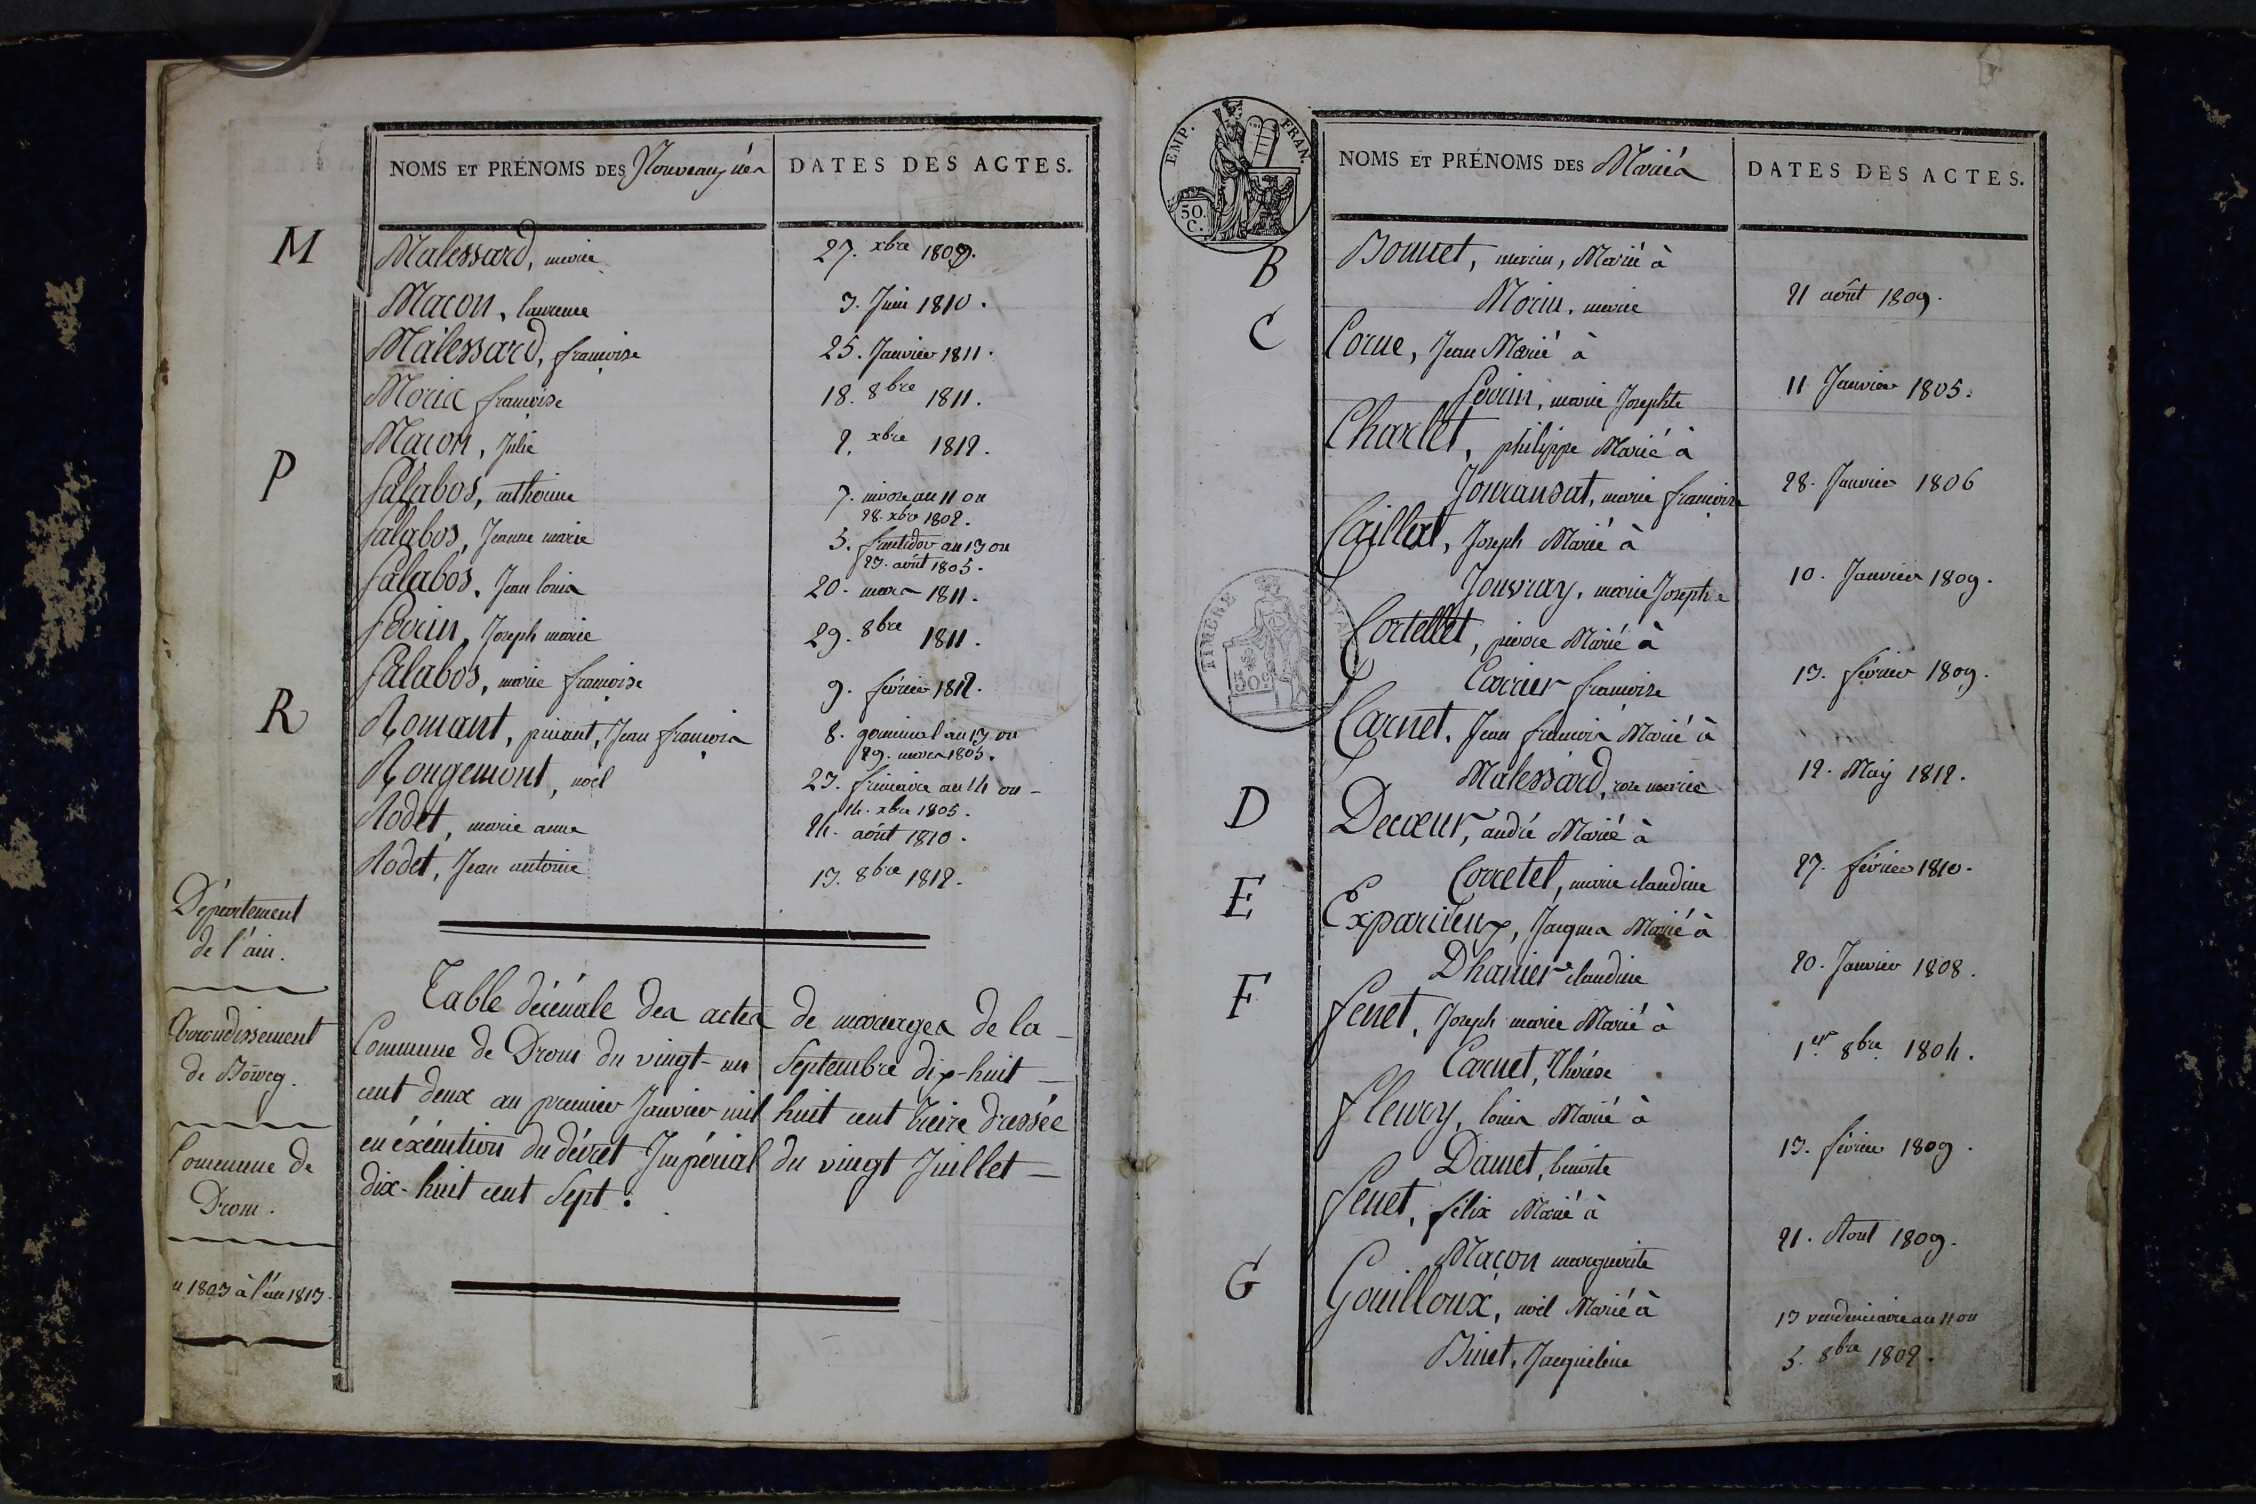 NOMS ET PRÉNOMS DES Nouveaux nés
DATES DES ACTES.
M
Malessard, marie
27. xbre 1809.
Macon, laurence
3. Juin 1810.
Malessard, françoise
25. Janvier 1811.
Moria françoise
18. 8bre 1811.
Macon, Julie
2. xbre 1812.
P
Palabos, anthoine
7. nivose an 11 ou
28. xbre 1802.
Palabos, Jeanne marie
5. fructidor an 13 ou
23. août 1805.
Palabos, Jean louis
20. mars 1811.
Perrin, Joseph marie
29. 8bre 1811.
Palabos, marie françoise
9. février 1812.
R
Romant, Jean françois
8. germinal an 13 ou
29. mars 1805.
Rougemont, noël
23. frimaire an 14 ou
14. xbre 1805.
Rodet, marie anne
24. août 1810.
Rodet, Jean antoine
13. 8bre 1812.
Département
de l'ain.
Arrondissement
de Bourg.
Commune de
Drom.
1803 à l'an 1813.
Table décénale des actes de mariages de la
Commune de Drom du vingt-un Septembre dix-huit
cent deux au premier Janvier mil huit cent treize dressée
en éxécution du décret Impérial du vingt Juillet
dix-huit cent Sept.
EMP. FRAN.
50.
C.
TIMBRE ROYAL
50 c
NOMS ET PRÉNOMS DES Mariés
DATES DES ACTES.
B
Bonnet, marin, Marié à
Morin, marie
21 août 1809.
C
Corue, Jean Marié à
Perrin, marie Josephte
11 Janvier 1805.
Charlet, philippe Marié à
Jouransat, marie françoise
28. Janvier 1806
Caillat, Joseph Marié à
Jouvray, marie Josephte
10. Janvier 1809.
Cortellet, pierre Marié à
Carrier françoise
13. février 1809.
Carnet, Jean françois Marié à
Malessard, rose marie
12. May 1812.
D
Decœur, andré Marié à
Corretel, marie claudine
27. février 1810.
E
Exparcieux, Jacques Marié à
D'hanier claudine
20. Janvier 1808.
F
fenet, Joseph marie Marié à
Carnet, Thérèse
1er 8bre 1804.
fleury, louis Marié à
Damet, benoite
13. février 1809.
fenet, félix Marié à
Maçon marguerite
21. Aout 1809.
G
Gouilloux, noël Marié à
Binet, Jacqueline
13 vendemiaire an 11 ou
5. 8bre 1802.